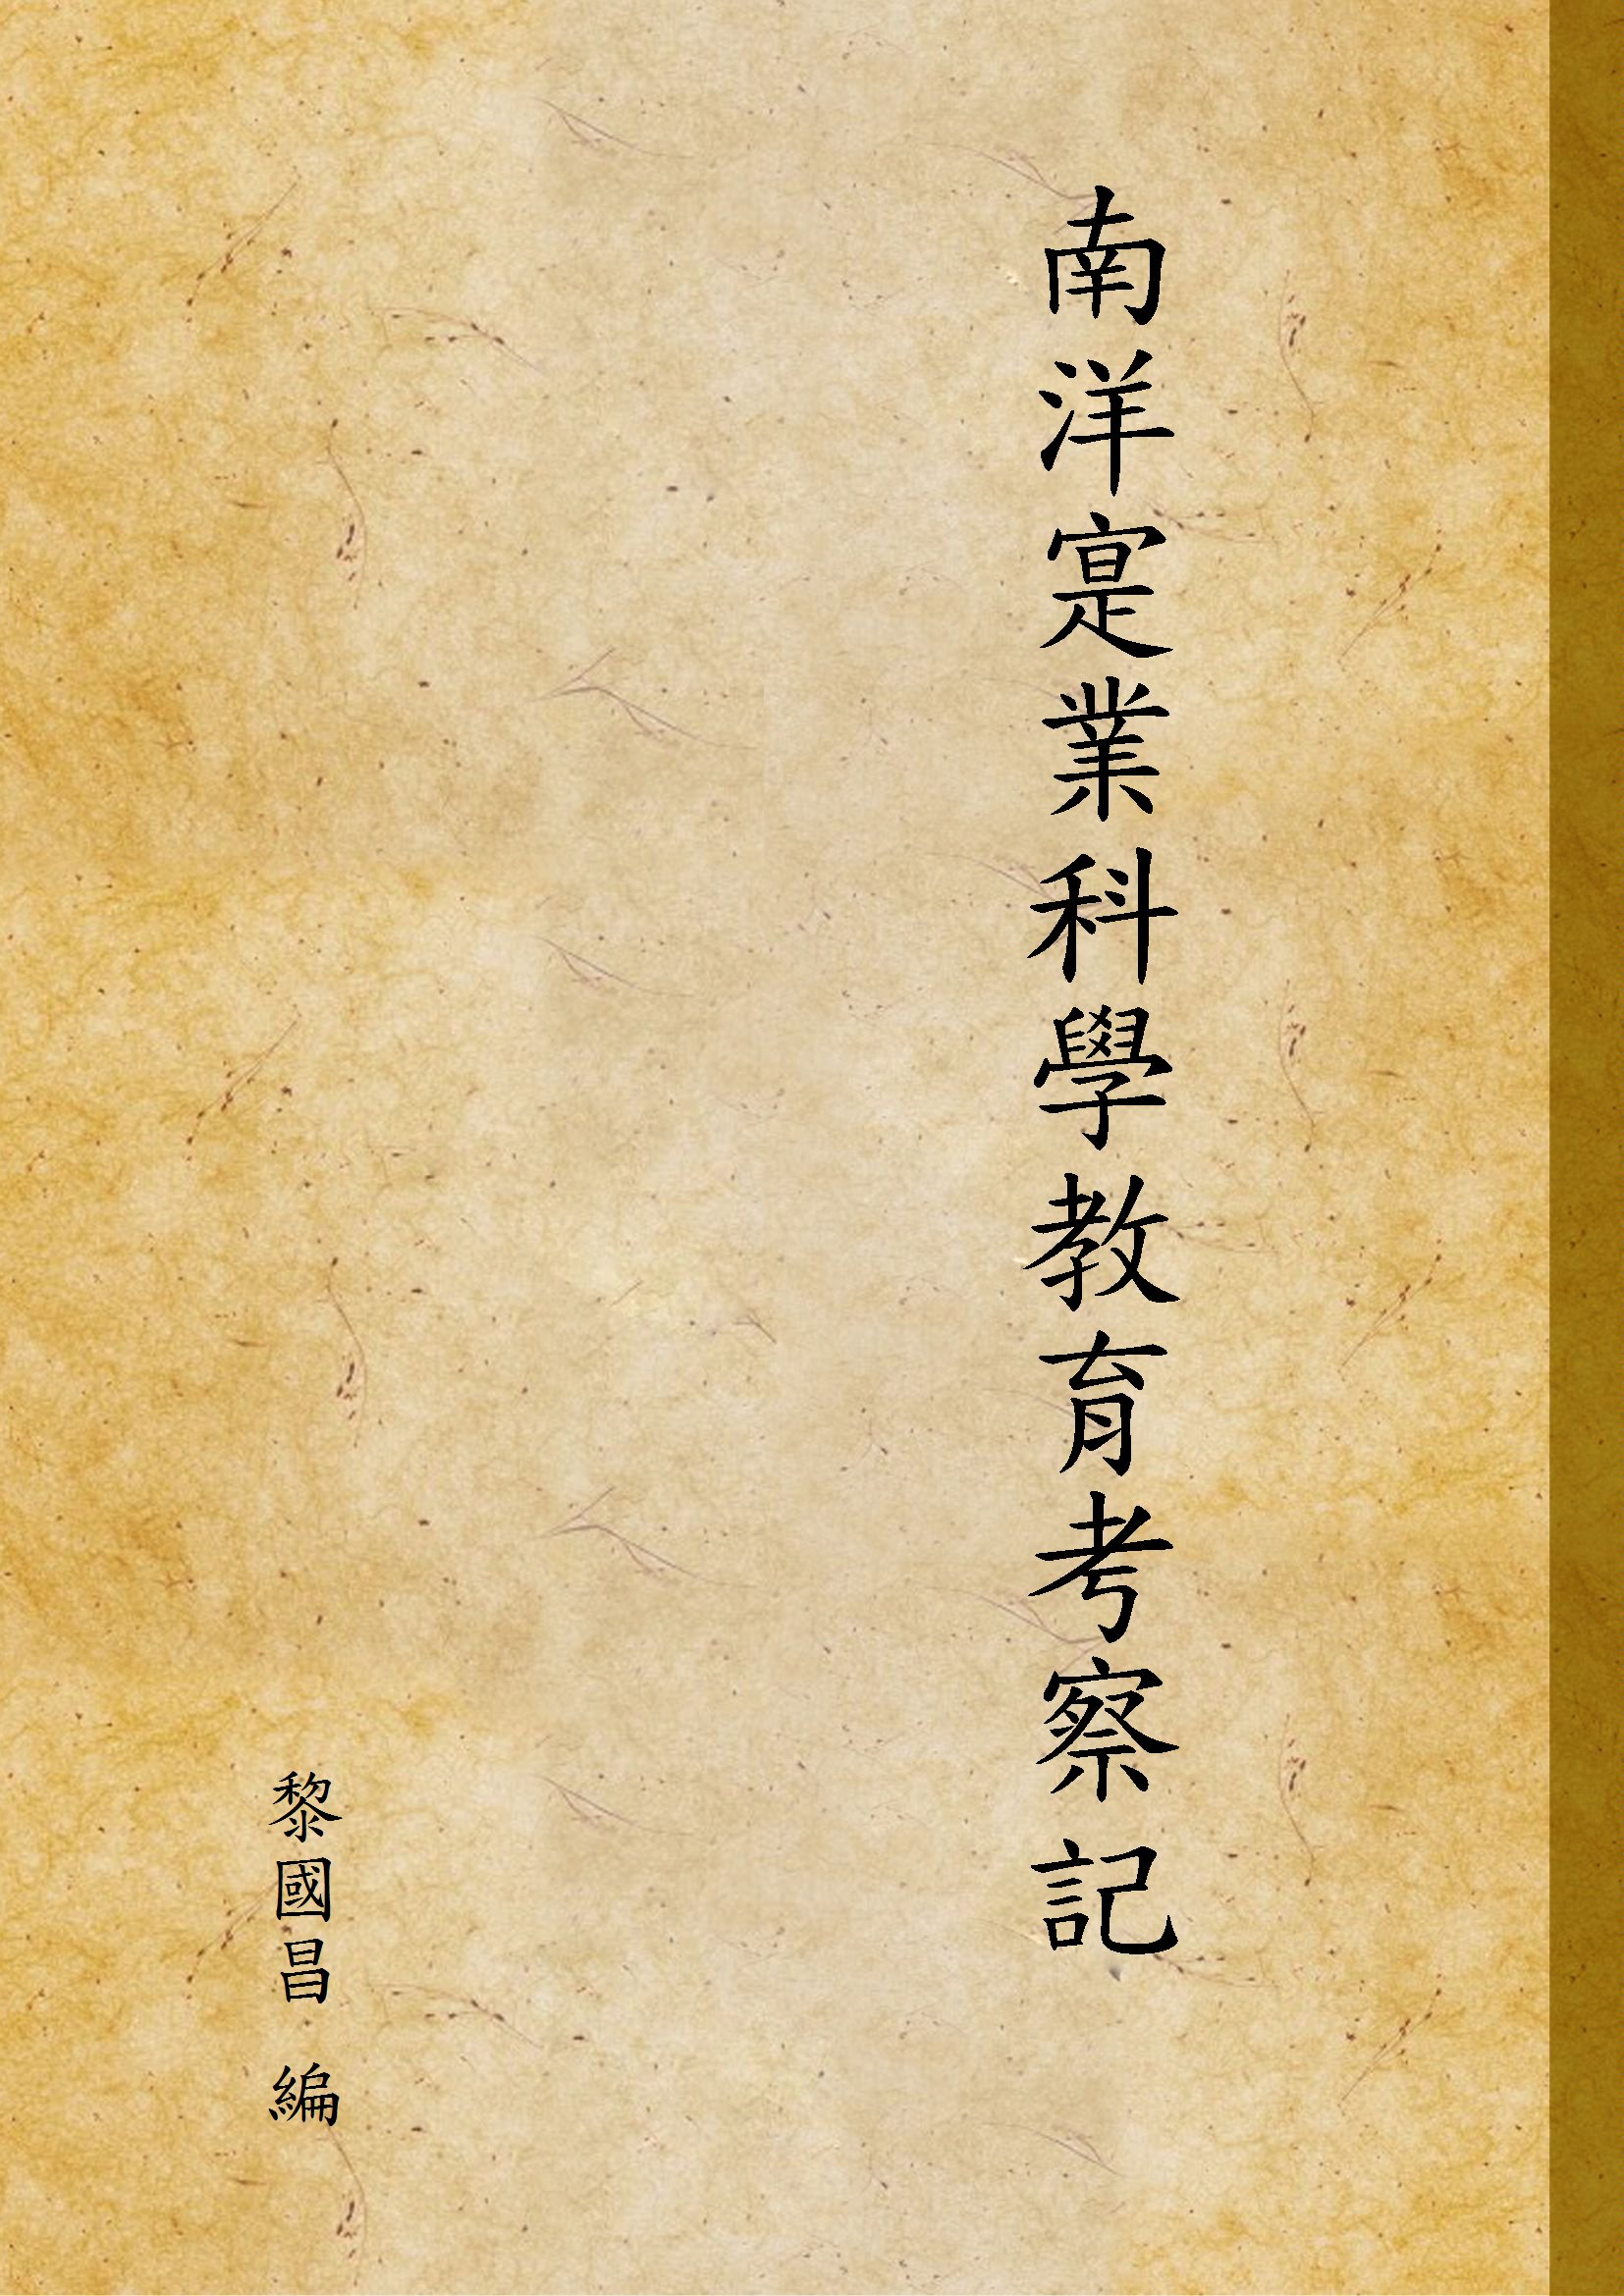 南洋寔業科學教育考察記
黎國昌 編